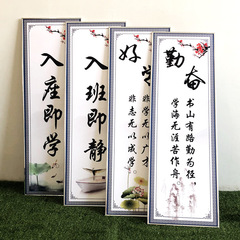 入座即学
入班即静
好学
非学无以广才
非志无以成学
勤奋
书山有路勤为径
学海无涯苦作舟